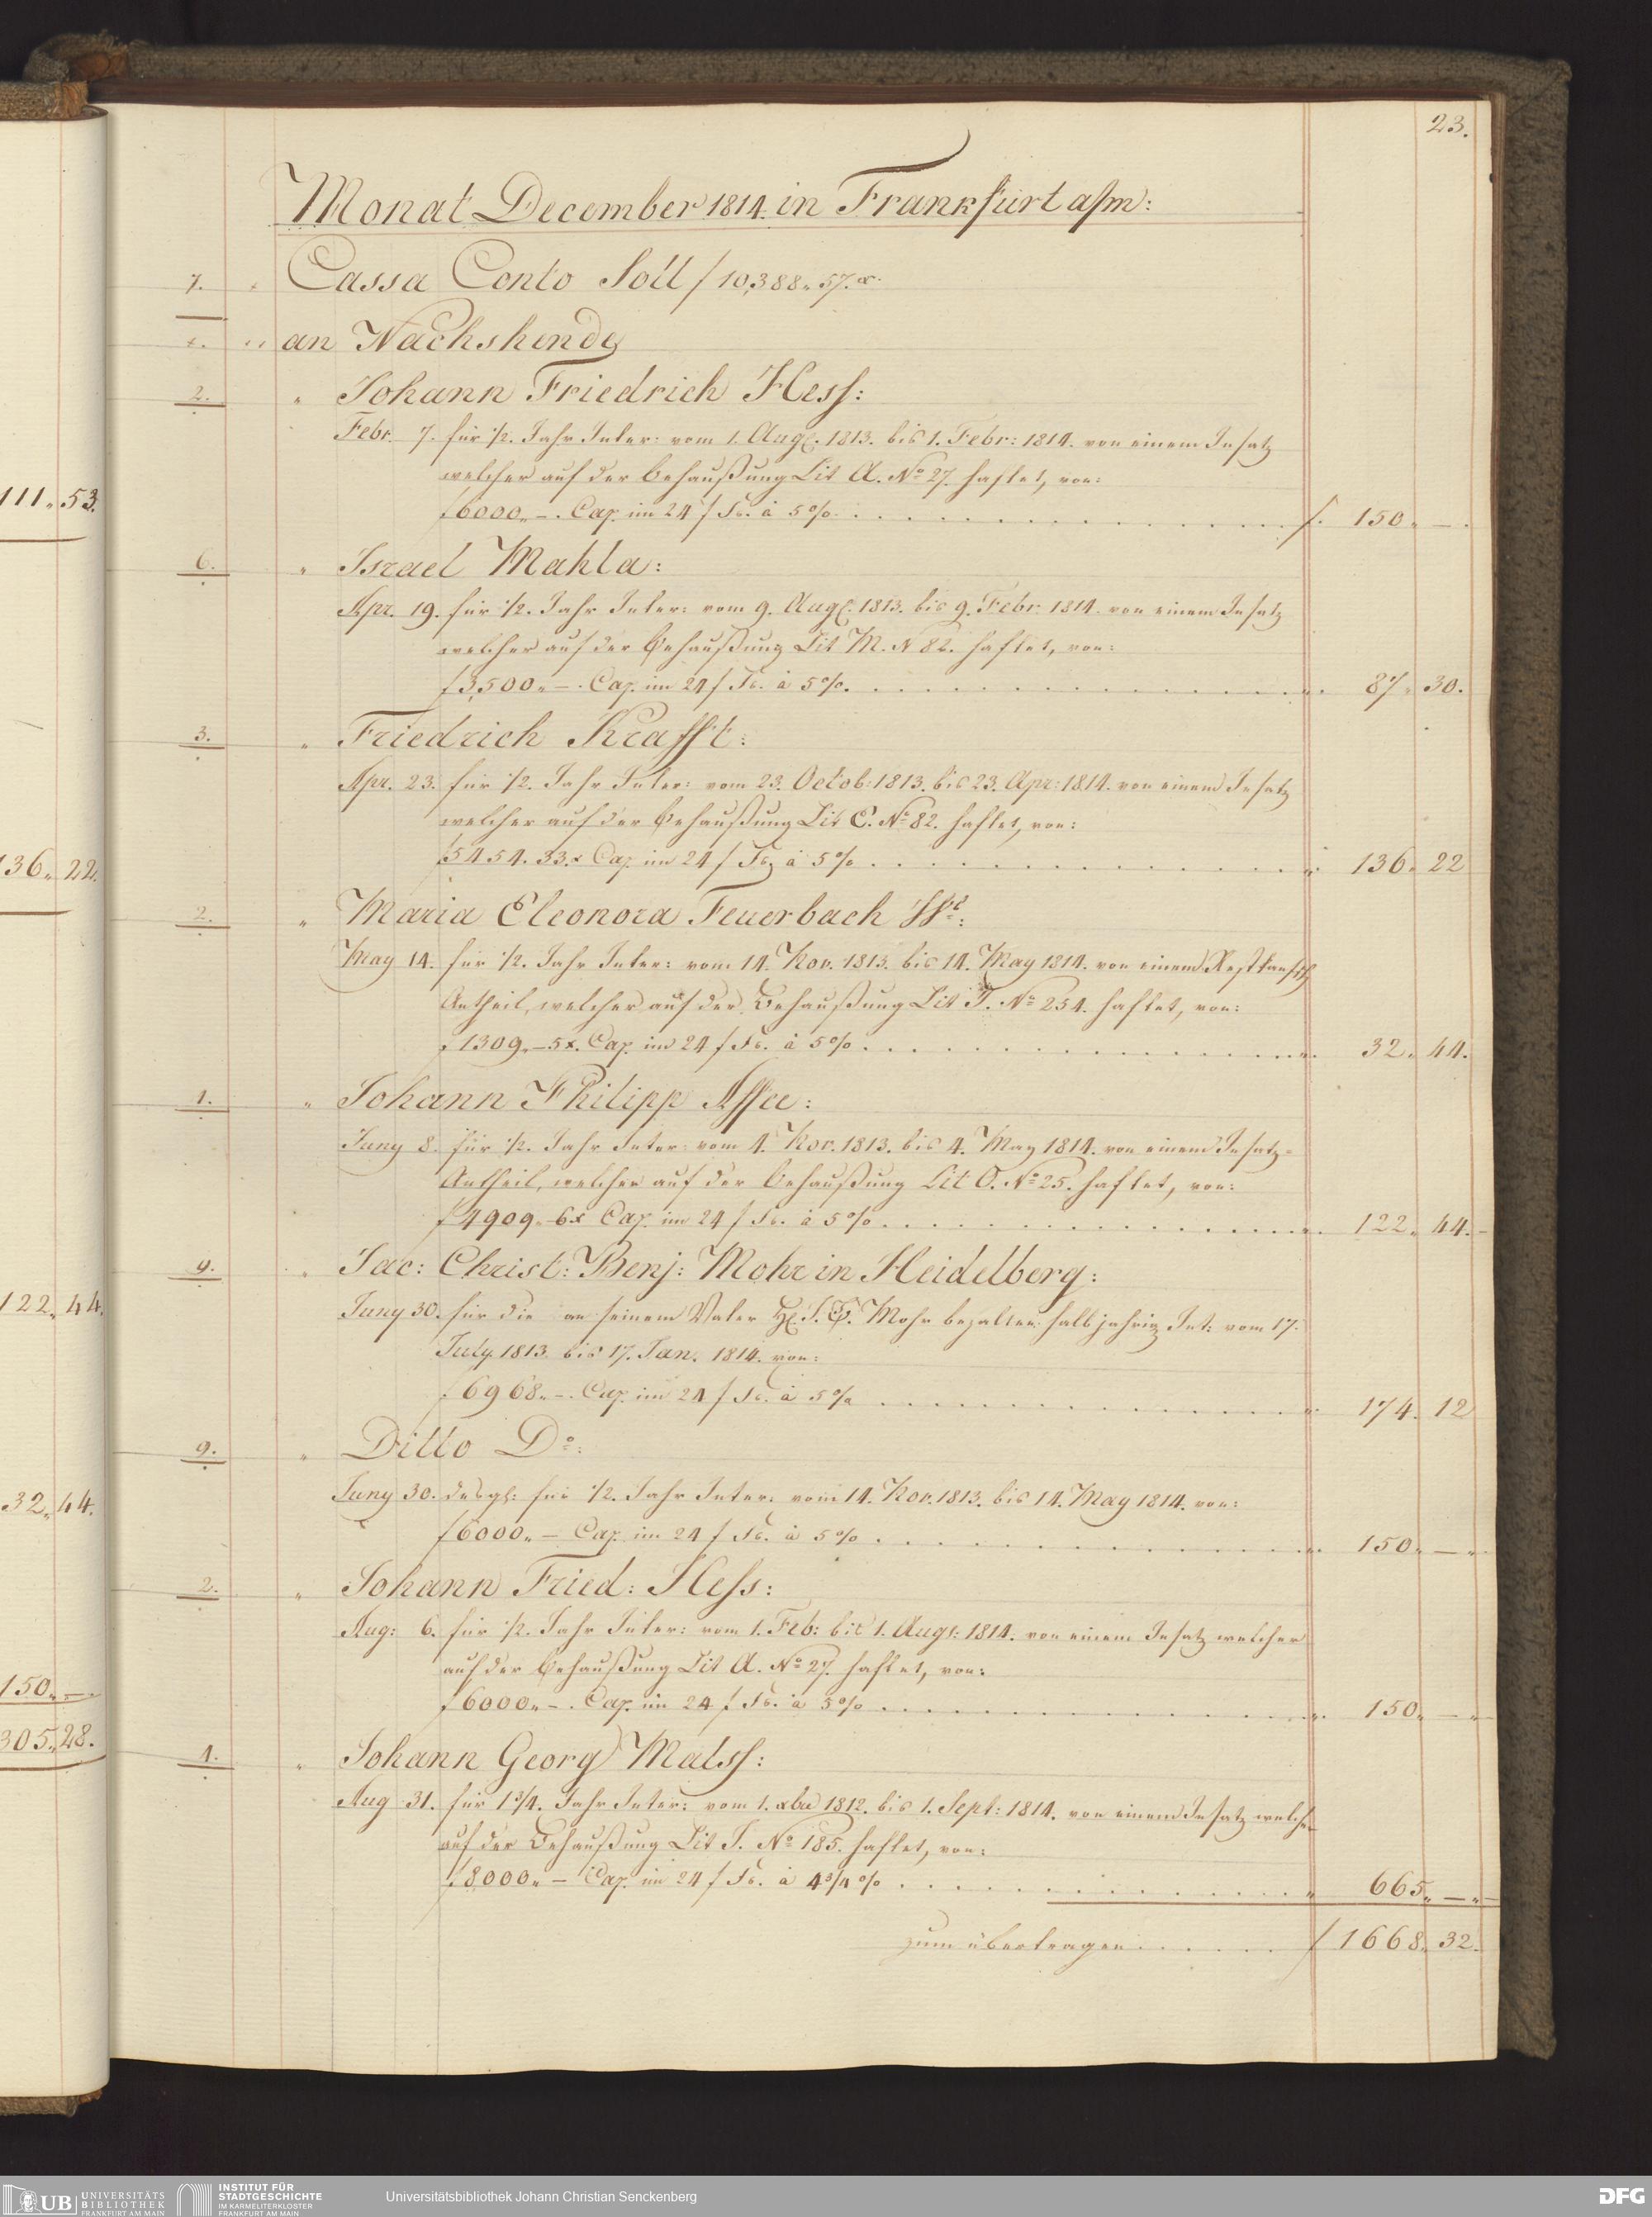 23.
Monat December 1814 in Frankfurt a/m:
7. Cassa Conto Soll f 10,388 „ 57. x.
an Nachstehende
2. „ Johann Friedrich Hess:
Febr. 7. für 1/2. Jahr Inter: vom 1. Aug. 1813. bis 1. Febr: 1814. von einem Insatz
welcher auf der Behaußung Lit A. No 27. haftet, von:
f 6000 „ –. Cap. im 24 f Fs. à 5 % . . . . f. 150 „ –.
6. „ Israel Mahla:
Apr. 19. für 1/2. Jahr Inter: vom 9. Aug. 1813. bis 9. Febr. 1814. von einem Insatz
welcher auf der Behaußung Lit M. N 82. haftet, von:
f 3,500 „ –. Cap. im 24 f Fs. à 5 %. . . . . „ 87 „ 30.
3. „ Friedrich Krafft:
Apr. 23. für 1/2. Jahr Inter: vom 23. Octob: 1813. bis 23. Apr: 1814. von einem Insatz
welcher auf der Behaußung Lit C. No 82. haftet, von:
f 5454. 33. x Cap. im 24 f Fs. à 5 % . . . . „ 136 „ 22
2. „ Maria Eleonora Feuerbach
May 14. für 1/2. Jahr Inter: vom 14. Nov. 1813. bis 14. May 1814. von einem
Antheil, welcher auf der Behaußung Lit J. No 254. haftet, von:
f 1309 „ – 5 x. Cap. im 24 f Fs. à 5 % . . . . „ 32 „ 44.
1. „ Johann Philipp
Juny 8. für 1/2. Jahr Inter: vom 4. Nov. 1813. bis 4. May 1814. von einem Insatz-
Antheil, welcher auf der Behaußung Lit O. No 25. haftet, von:
f 4909 „ – 6 x Cap. im 24 f Fs. à 5 % . . . . „ 122 „ 44.
9. „ Jac: Christ: Benj: Mohr in Heidelberg:
Juny 30. für die an seinem Vater Mohr bezalten halbjahrig Int: vom 17.
July 1813. bis 17. Jan. 1814. von:
f 6968 „ –. Cap. im 24 f Fs. à 5 % . . . . „ 174. 12
9. „ Ditto Do:
Juny 30. desgl: für 1/2. Jahr Inter: vom 14. Nov. 1813. bis 14. May 1814. von:
f 6000 „ – Cap. im 24 f Fs. à 5 % . . . . „ 150 „ – „
2. „ Johann Fried: Hess:
Aug: 6. für 1/2. Jahr Inter: vom 1. Feb: bis 1. Aug: 1814. von einem Insatz welcher
auf der Behaußung Lit A. No 27. haftet, von:
f 6000 „ –. Cap. im 24 f Fs. à 5 % . . . . „ 150 „ – „
1. „ Johann Georg Malss:
Aug 31. für 1 3/4. Jahr Inter: vom 1. xbre 1812. bis 1. Sept: 1814. von einem Insatz welcher
auf der Behaußung Lit J. No 185. haftet, von:
f 8000 „ – Cap. im 24 f Fs. à 4 3/4 % . . . . „ 665 „ – „
zum übertragen . . . . . f 1668 „ 32.
111 „ 53.
136 „ 22.
122 „ 44.
32 „ 44.
150 „ –.
305 „ 28.
UB UNIVERSITÄTS
BIBLIOTHEK
FRANKFURT AM MAIN
INSTITUT FÜR
STADTGESCHICHTE
IM KARMELITERKLOSTER
FRANKFURT AM MAIN
Universitätsbibliothek Johann Christian Senckenberg
DFG